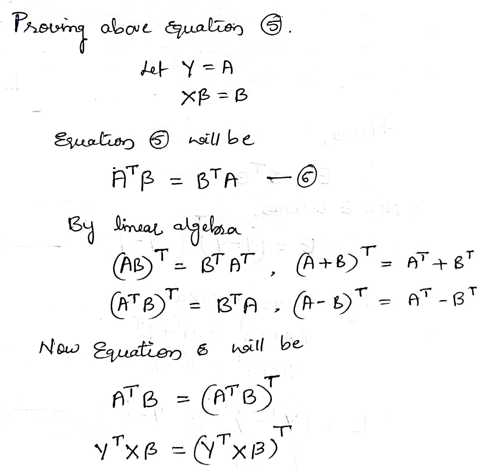 Proving above Equation ⑤.
Let Y = A
Xβ = B
Equation ⑤ will be
AᵀB = BᵀA — ⑥
By linear algebra
(AB)ᵀ = BᵀAᵀ , (A+B)ᵀ = Aᵀ+Bᵀ
(AᵀB)ᵀ = BᵀA , (A-B)ᵀ = Aᵀ-Bᵀ
Now Equation 6 will be
AᵀB = (AᵀB)ᵀ
YᵀXβ = (YᵀXβ)ᵀ